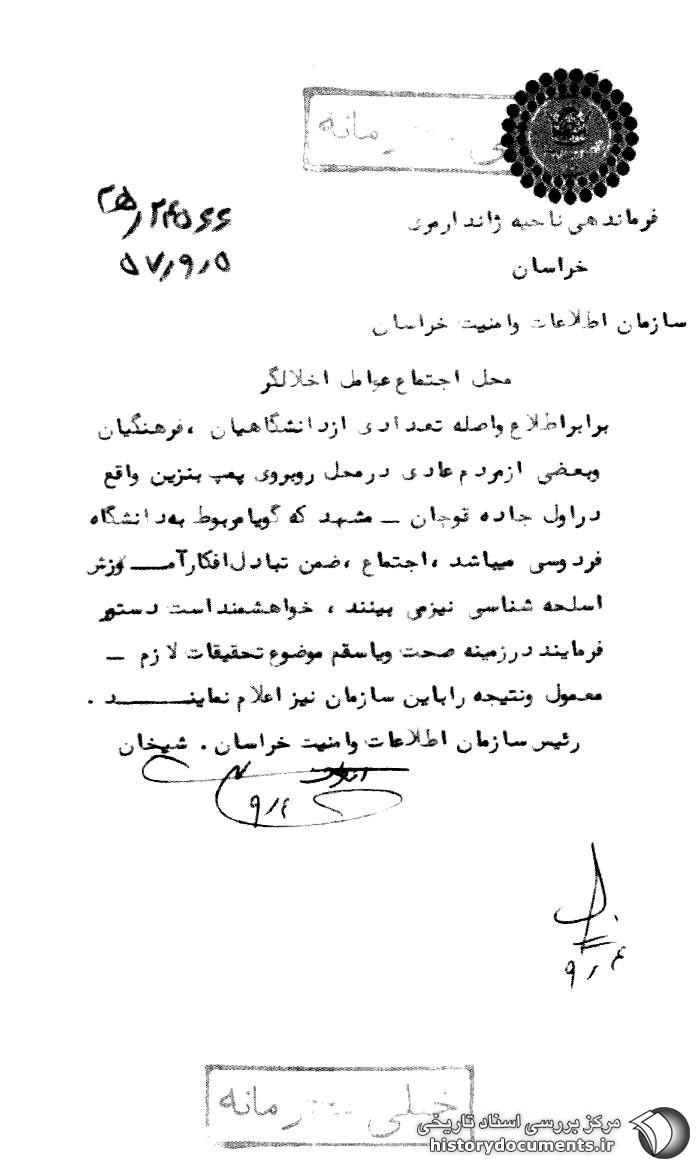 خیلی محرمانه
۲۵/۲۴۵۶۶
۵۷/۹/۵
فرماندهی ناحیه ژاندارمری
خراسان
سازمان اطلاعات وامنیت خراسان
محل اجتماع عوامل اخلالگر
برابراطلاع واصله تعدادی ازدانشگاهیان ،فرهنگیان
وبعضی ازمردم عادی درمحل روبروی پمپ بنزین واقع
دراول جاده قوچان – مشهد که گویامربوط به دانشگاه
فردوسی میباشد ،اجتماع ،ضمن تبادل افکارآمــوزش
اسلحه شناسی نیزمی بینند ، خواهشمنداست دستور
فرمایند درزمینه صحت ویاسقم موضوع تحقیقات لازم –
معمول ونتیجه راباین سازمان نیز اعلام نماینــــد .
رئیس سازمان اطلاعات وامنیت خراسان . شیخان
۹/۴
۹/۴
خیلی محرمانه
مرکز بررسی اسناد تاریخی
historydocuments.ir